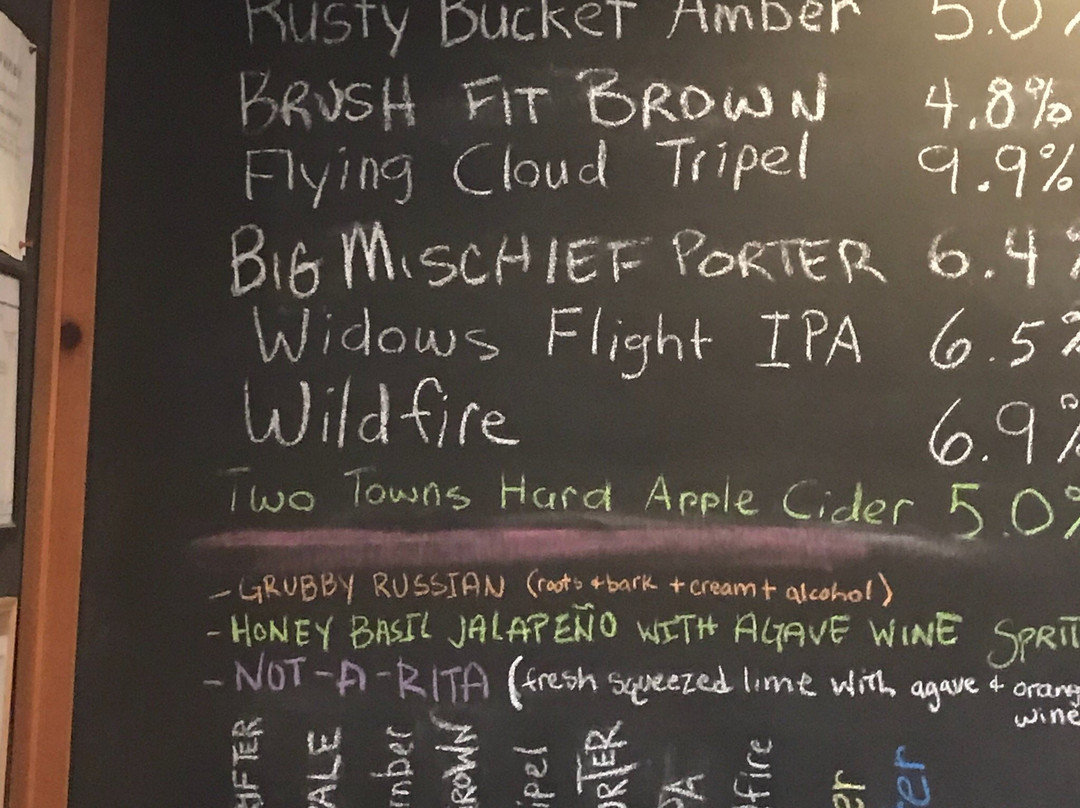 Rusty Bucket Amber 5.0%
BRUSH FIT BROWN 4.8%
Flying Cloud Tripel 9.9%
BIG MISCHIEF PORTER 6.4%
Widows Flight IPA 6.5%
Wildfire 6.9%
Two Towns Hard Apple Cider 5.0%
- GRUBBY RUSSIAN (roots + bark + cream + alcohol)
- HONEY BASIL JALAPEÑO WITH AGAVE WINE SPRIT
- NOT-A-RITA (fresh squeezed lime with agave + orang
wine
UFTER
ALE
mber
ROWN
ipel
ORTER
PA
dfire
er
er